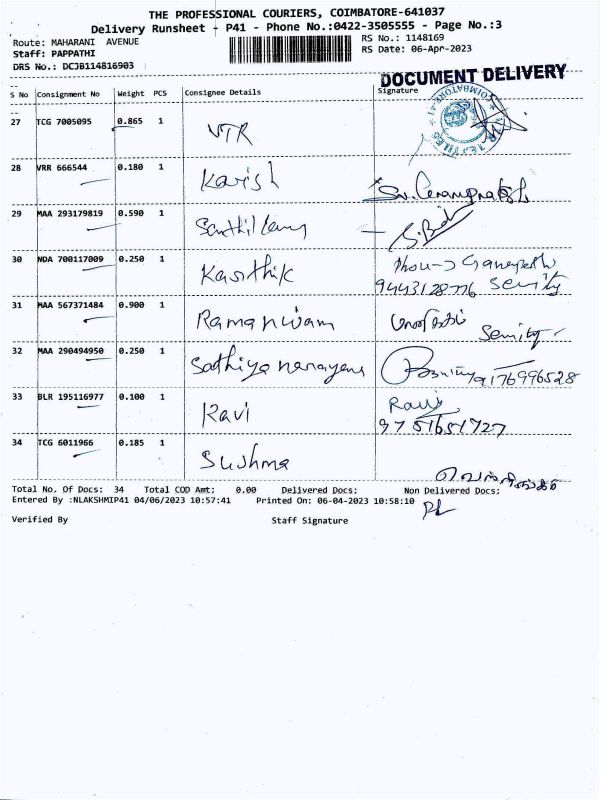 THE PROFESSIONAL COURIERS, COIMBATORE-641037
Delivery Runsheet - P41 - Phone No.:0422-3505555 - Page No.:3
Route: MAHARANI AVENUE
RS No.: 1148169
Staff: PAPPATHI
RS Date: 06-Apr-2023
DRS No.: DCJB114816903
DOCUMENT DELIVERY
S No Consignment No Weight PCS Consignee Details Signature
27 TCG 7005095 0.865 1 VTR
28 VRR 666544 0.180 1 Kavish
29 MAA 293179819 0.590 1
30 NDA 700117009 0.250 1 Karthik
9443128776
31 MAA 567371484 0.900 1
32 MAA 290494950 0.250 1 Sathiya narayana
9176996528
33 BLR 195116977 0.100 1 Ravi Ravi
9751651727
34 TCG 6011966 0.185 1 Sushma
Total No. Of Docs: 34 Total COD Amt; 0.00 Delivered Docs: Non Delivered Docs;
Entered By :NLAKSHMIP41 04/06/2023 10:57:41 Printed On: 06-04-2023 10:58:10
Verified By Staff Signature